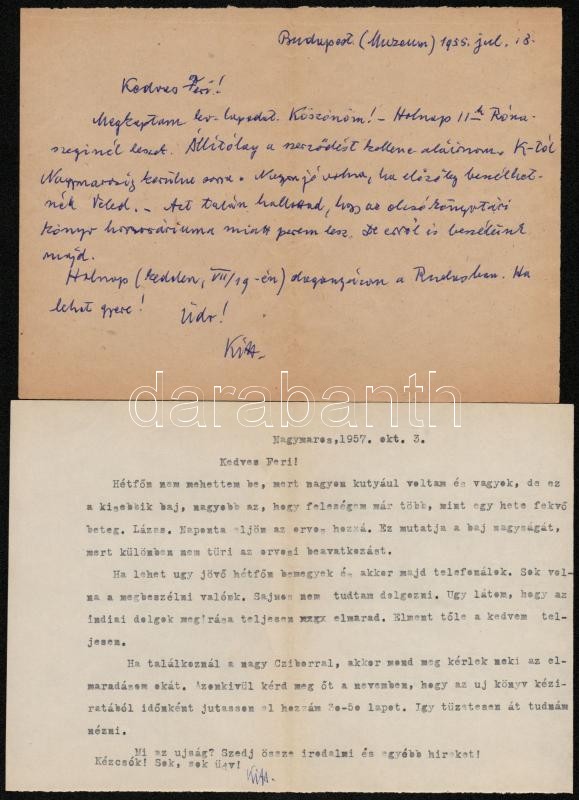 Budapest. (Muzeum) 1955. jul. 18.
Kedves Feri!
Megkaptam lev-lapodat. Köszönöm! – Holnap 11h Róna-
szeginél leszek. Állítólag a szerződést kellene aláírnom. K-tól
Nagymarosig kerülne sorra. Nagyon jó volna, ha előzőleg beszélhet-
nék Veled. – Azt talán hallottad, hogy az olcsókönyvtári
könyv honoráriuma miatt perem lesz. De erről is beszélünk
majd.
Holnap (kedden, VII/19-én) a Rudasban. Ha
lehet gyere!
Üdv!
Kitt.
darabanth
Nagymaros,1957. okt. 3.
Kedves Feri!
Hétfőn nem mehettem be, mert nagyon kutyául voltam és vagyok, de ez
a kisebbik baj, nagyobb az, hogy feleségem már több, mint egy hete fekvő
beteg. Lázas. Naponta eljön az orvos hozzá. Ez mutatja a baj nagyságát,
mert különben nem türi az orvosi beavatkozást.
Ha lehet ugy jövő hétfőn bemegyek és akkor majd telefonálok. Sok vol-
na a megbeszélni valónk. Sajnos nem tudtam dolgozni. Ugy látom, hogy az
indiai dolgok megirása teljesen elmarad. Elment tőle a kedvem tel-
jesen.
Ha találkoznál a nagy Cziborral, akkor mond meg kérlek neki az el-
maradásom okát. Azonkivül kérd meg őt a nevemben, hogy az uj könyv kézi-
ratából időnként jutasson el hozzám 3o-5o lapot. Igy tüzetesen át tudnám
nézni.
Mi az ujság? Szedj össze irodalmi és egyébb hireket!
Kézcsók! Sok, sok üdv!
Kitt.